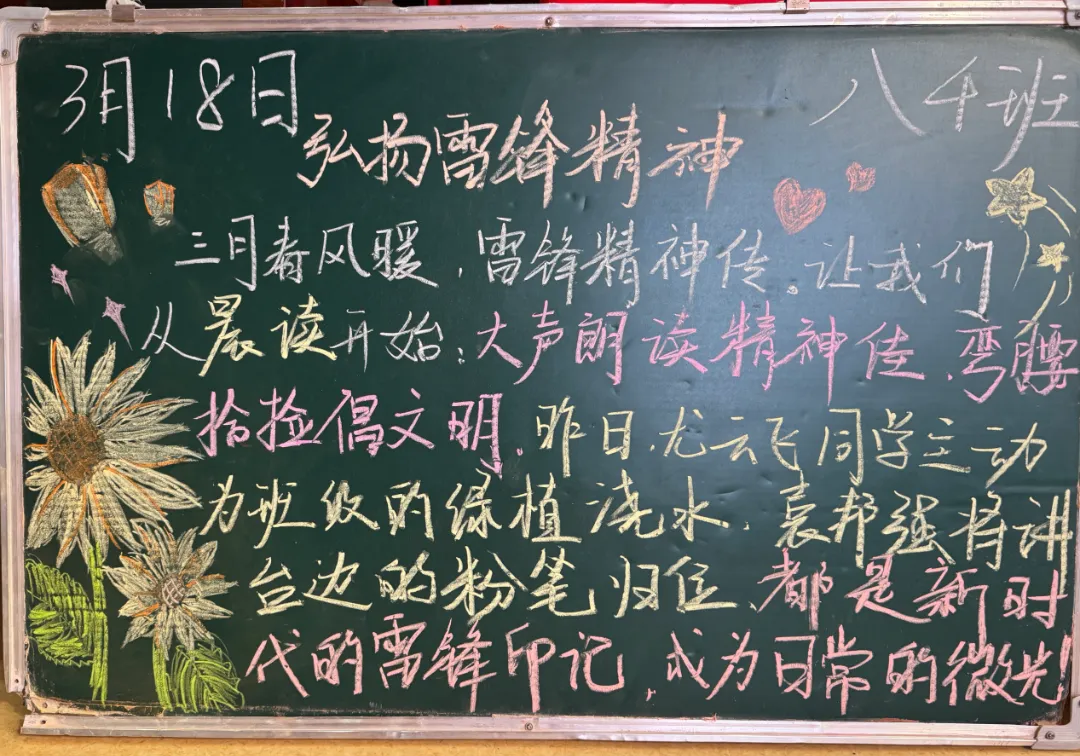 3月18日 八4班
弘扬雷锋精神
三月春风暖，雷锋精神传。让我们
从晨读开始：大声朗读精神传，弯腰
拾捡倡文明。昨日，尤云飞同学主动
为班级的绿植浇水，袁邦强将讲
台边的粉笔归位，都是新时
代的雷锋印记，成为日常的微光！